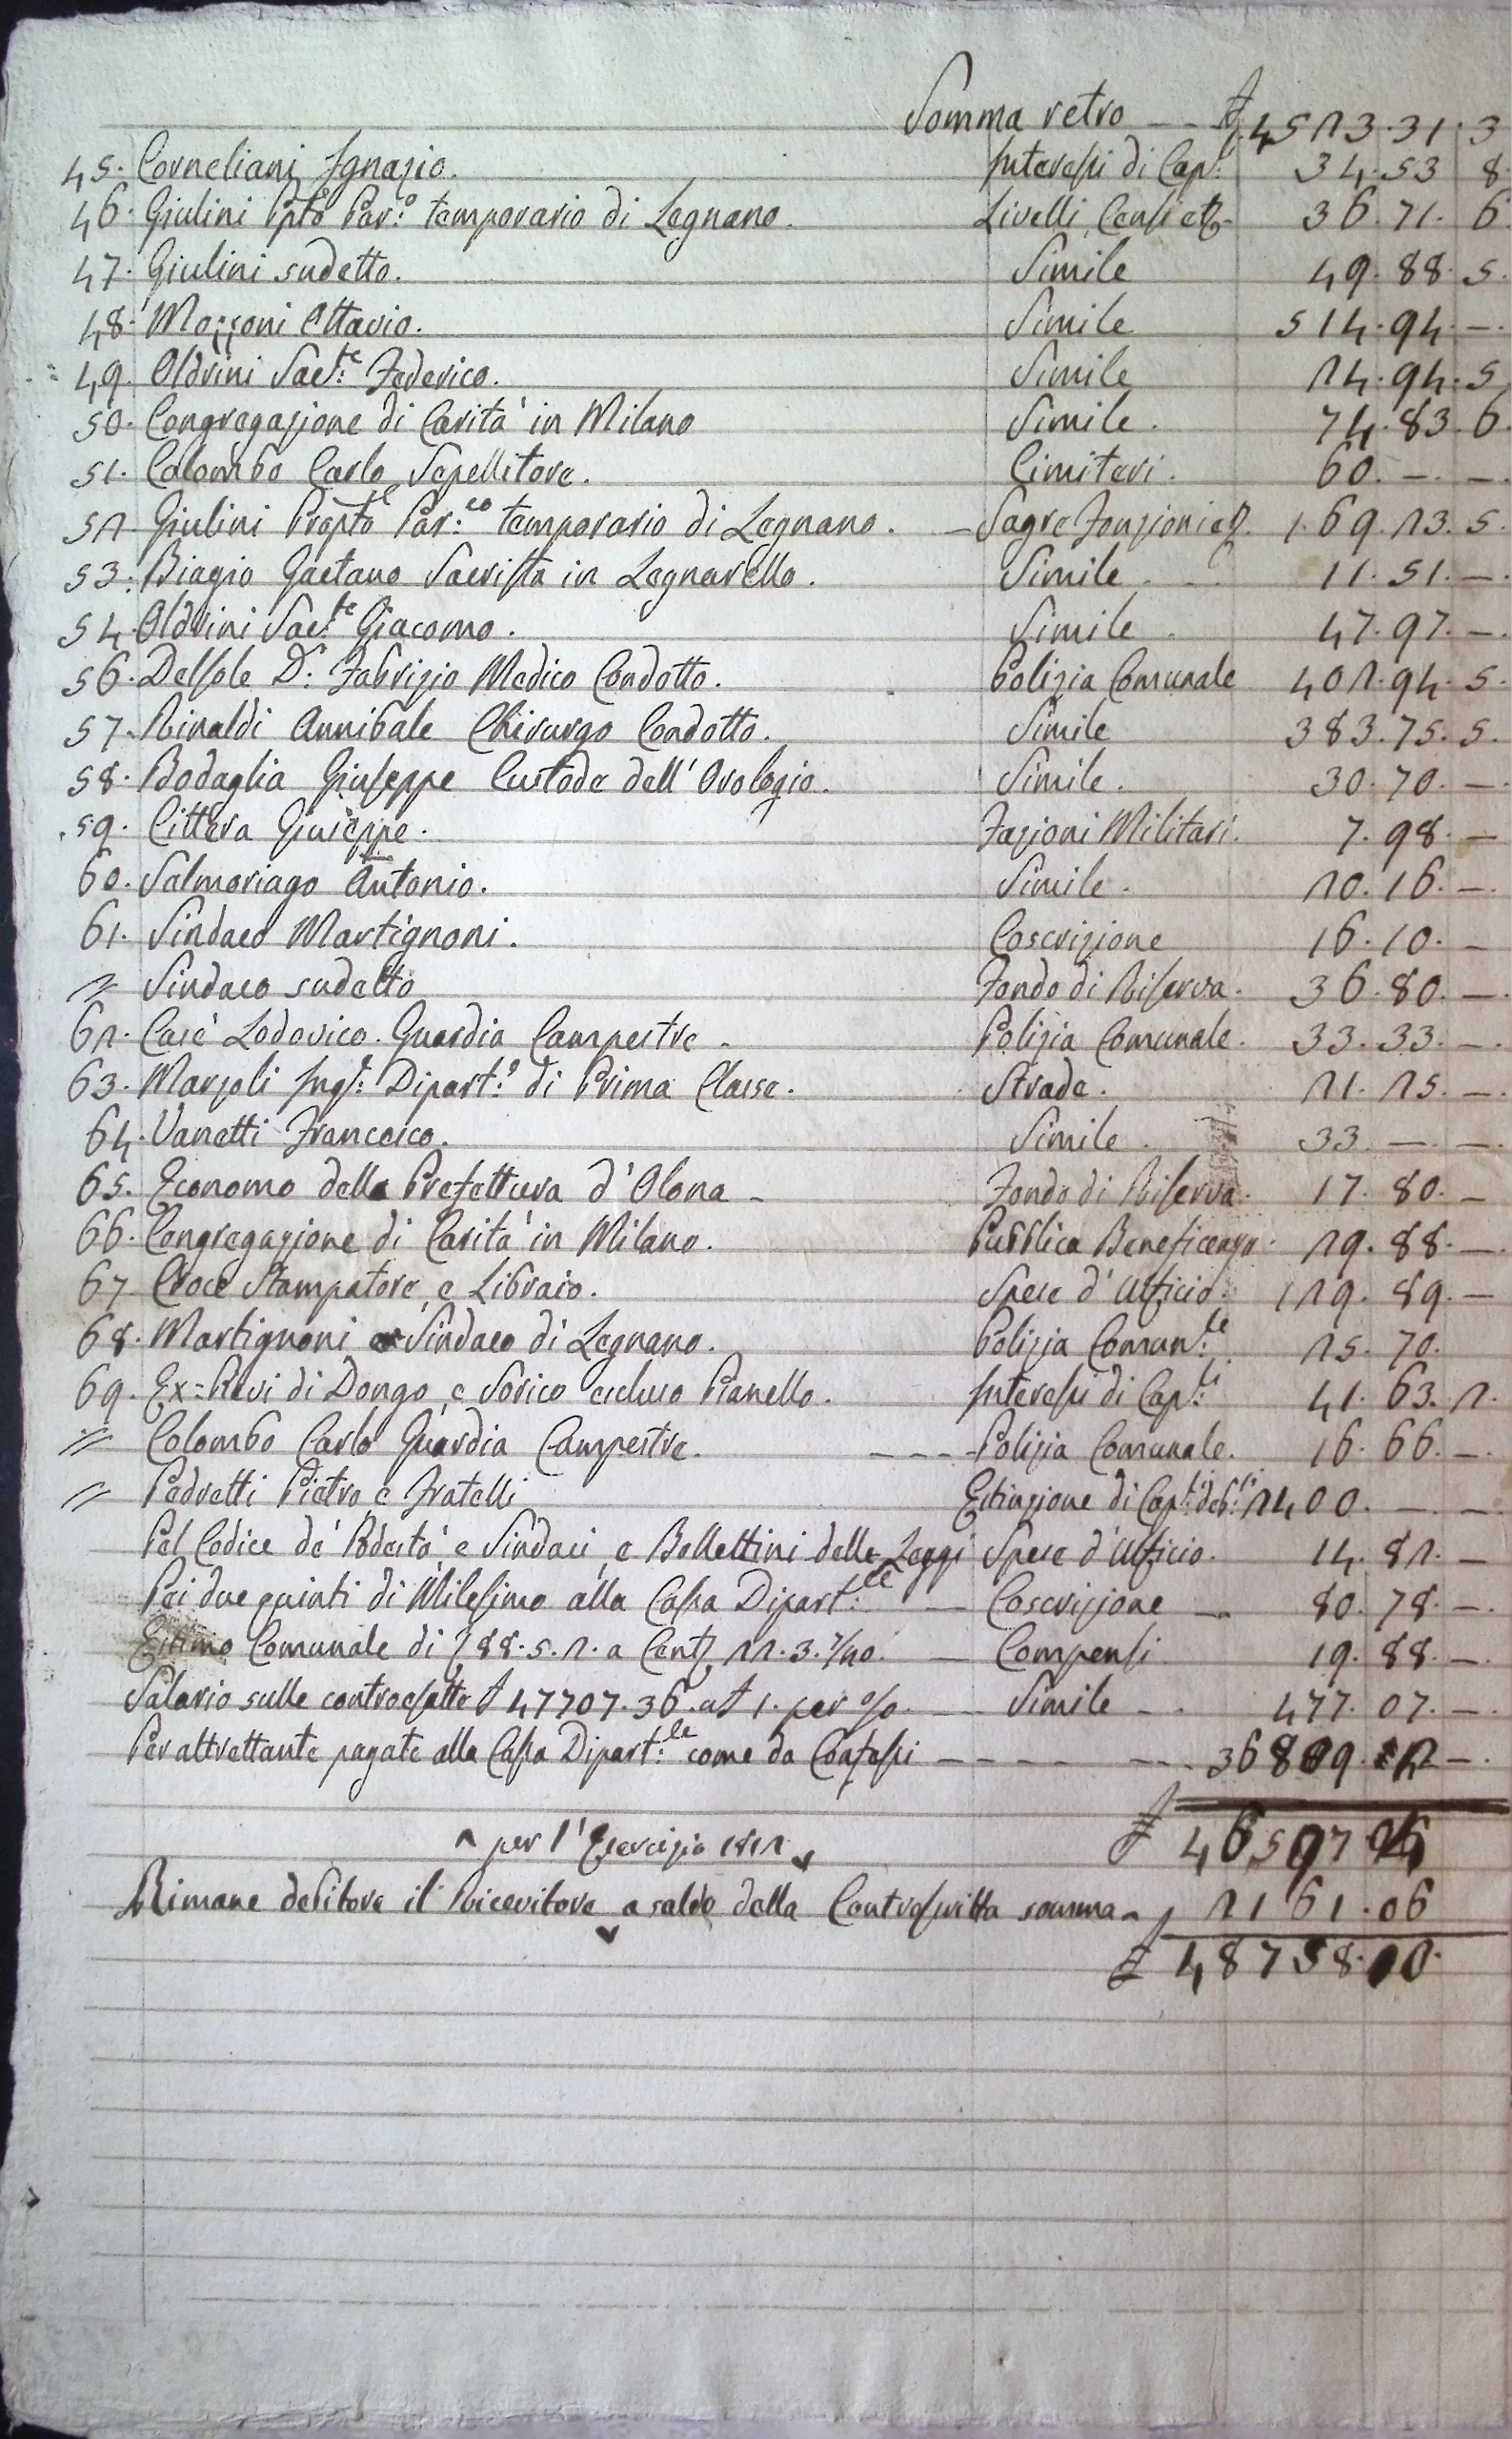 Somma retro -- £ 4523.31.3
45. Corneliani Ignazio. Interessi di Cap.li 34.53 8
46. Giulini Ppto Par.o temporario di Legnano. Livelli, Censi etz. 36.71. 6.
47. Giulini sudetto. Simile 49.88.5.
48. Mozzoni Ottavio. Simile 514.94.—.
49. Oldrini Sac.te Federico. Simile 24.94.5
50. Congregazione di Carità in Milano Simile. 74.83.6.
51. Colombo Carlo Sepellitore. Cimiteri. 60.—.—.
52 Giulini Propto Par.co temporario di Legnano. — Sagre Fonzioni etz. 169.23.5.
53. Biagio Gaetano Sacrista in Legnarello. Simile. 11.51.—.
54. Oldrini Sac.te Giacomo. Simile. 47.97.—.
56. Delsole D.r Fabrizio Medico Condotto. Polizia Comunale 402.94.5.
57. Rinaldi Annibale Chirurgo Condotto. Simile 383.75.5.
58. Bodaglia Giuseppe Custode dell' Orologio. Simile. 30.70.—.
59. Cittera Giuseppe. Fazioni Militari. 7.98.—
60. Salmoriago Antonio. Simile. 20.16.—.
61. Sindaco Martignoni. Coscrizione 16.10.—
〃 Sindaco sudetto Fondo di Riserva. 36.80.—.
62. Casè Lodovico. Guardia Campestre. Polizia Comunale. 33.33.—.
63. Marzoli Ing.e Dipart.e di Prima Classe. Strade. 21.25.—.
64. Vanetti Francesco. Simile. 33.—.—.
65. Economo della Prefettura d'Olona — Fondo di Riserva. 17.80.—
66. Congregazione di Carità in Milano. Pubblica Beneficenza. 29.88.—.
67 Croce Stampatore, e Libraio. Spese d'Ufficio. 129.89.—
68. Martignoni Sindaco di Legnano. Polizia Comun.le 25.70.
69. Ex=Pievi di Dongo, e Sorico escluso Pianello. Interessi di Cap.li 41.63.2.
〃 Colombo Carlo Guardia Campestre. ---- Polizia Comunale. 16.66.—.
〃 Pedretti Pietro e Fratelli Estinzione di Cap.li deb.ti 2400.—.—.
Pel Codice de' Podestà, e Sindaci, e Bollettini delle Leggi Spese d'Ufficio. 14.82.—
Pei due quinti di Milesimo alla Cassa Dipart.le — Coscrizione — 80.78.—.
Estimo Comunale di 788.5.2. a Cent. 22.3.7/20. — Compensi. 19.88.—.
Salario sulle controesatte £ 47707.36. a £ 1. per %. — Simile —. 477.07.—.
Per altrettante pagate alla Cassa Dipart.le come da Confessi —————— 36809.12—.
£ 46597 14
^ per l'Esercizio 1812
Rimane debitore il Ricevitore a saldo della Controscritta somma £ 2161.06
£ 48758.20.